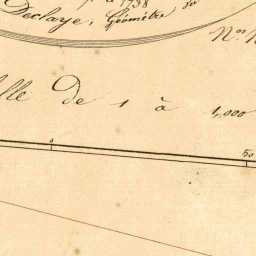 à 1738
Declaye, Géomètre du
Nos N
lle de 1 à 1,000
0 50